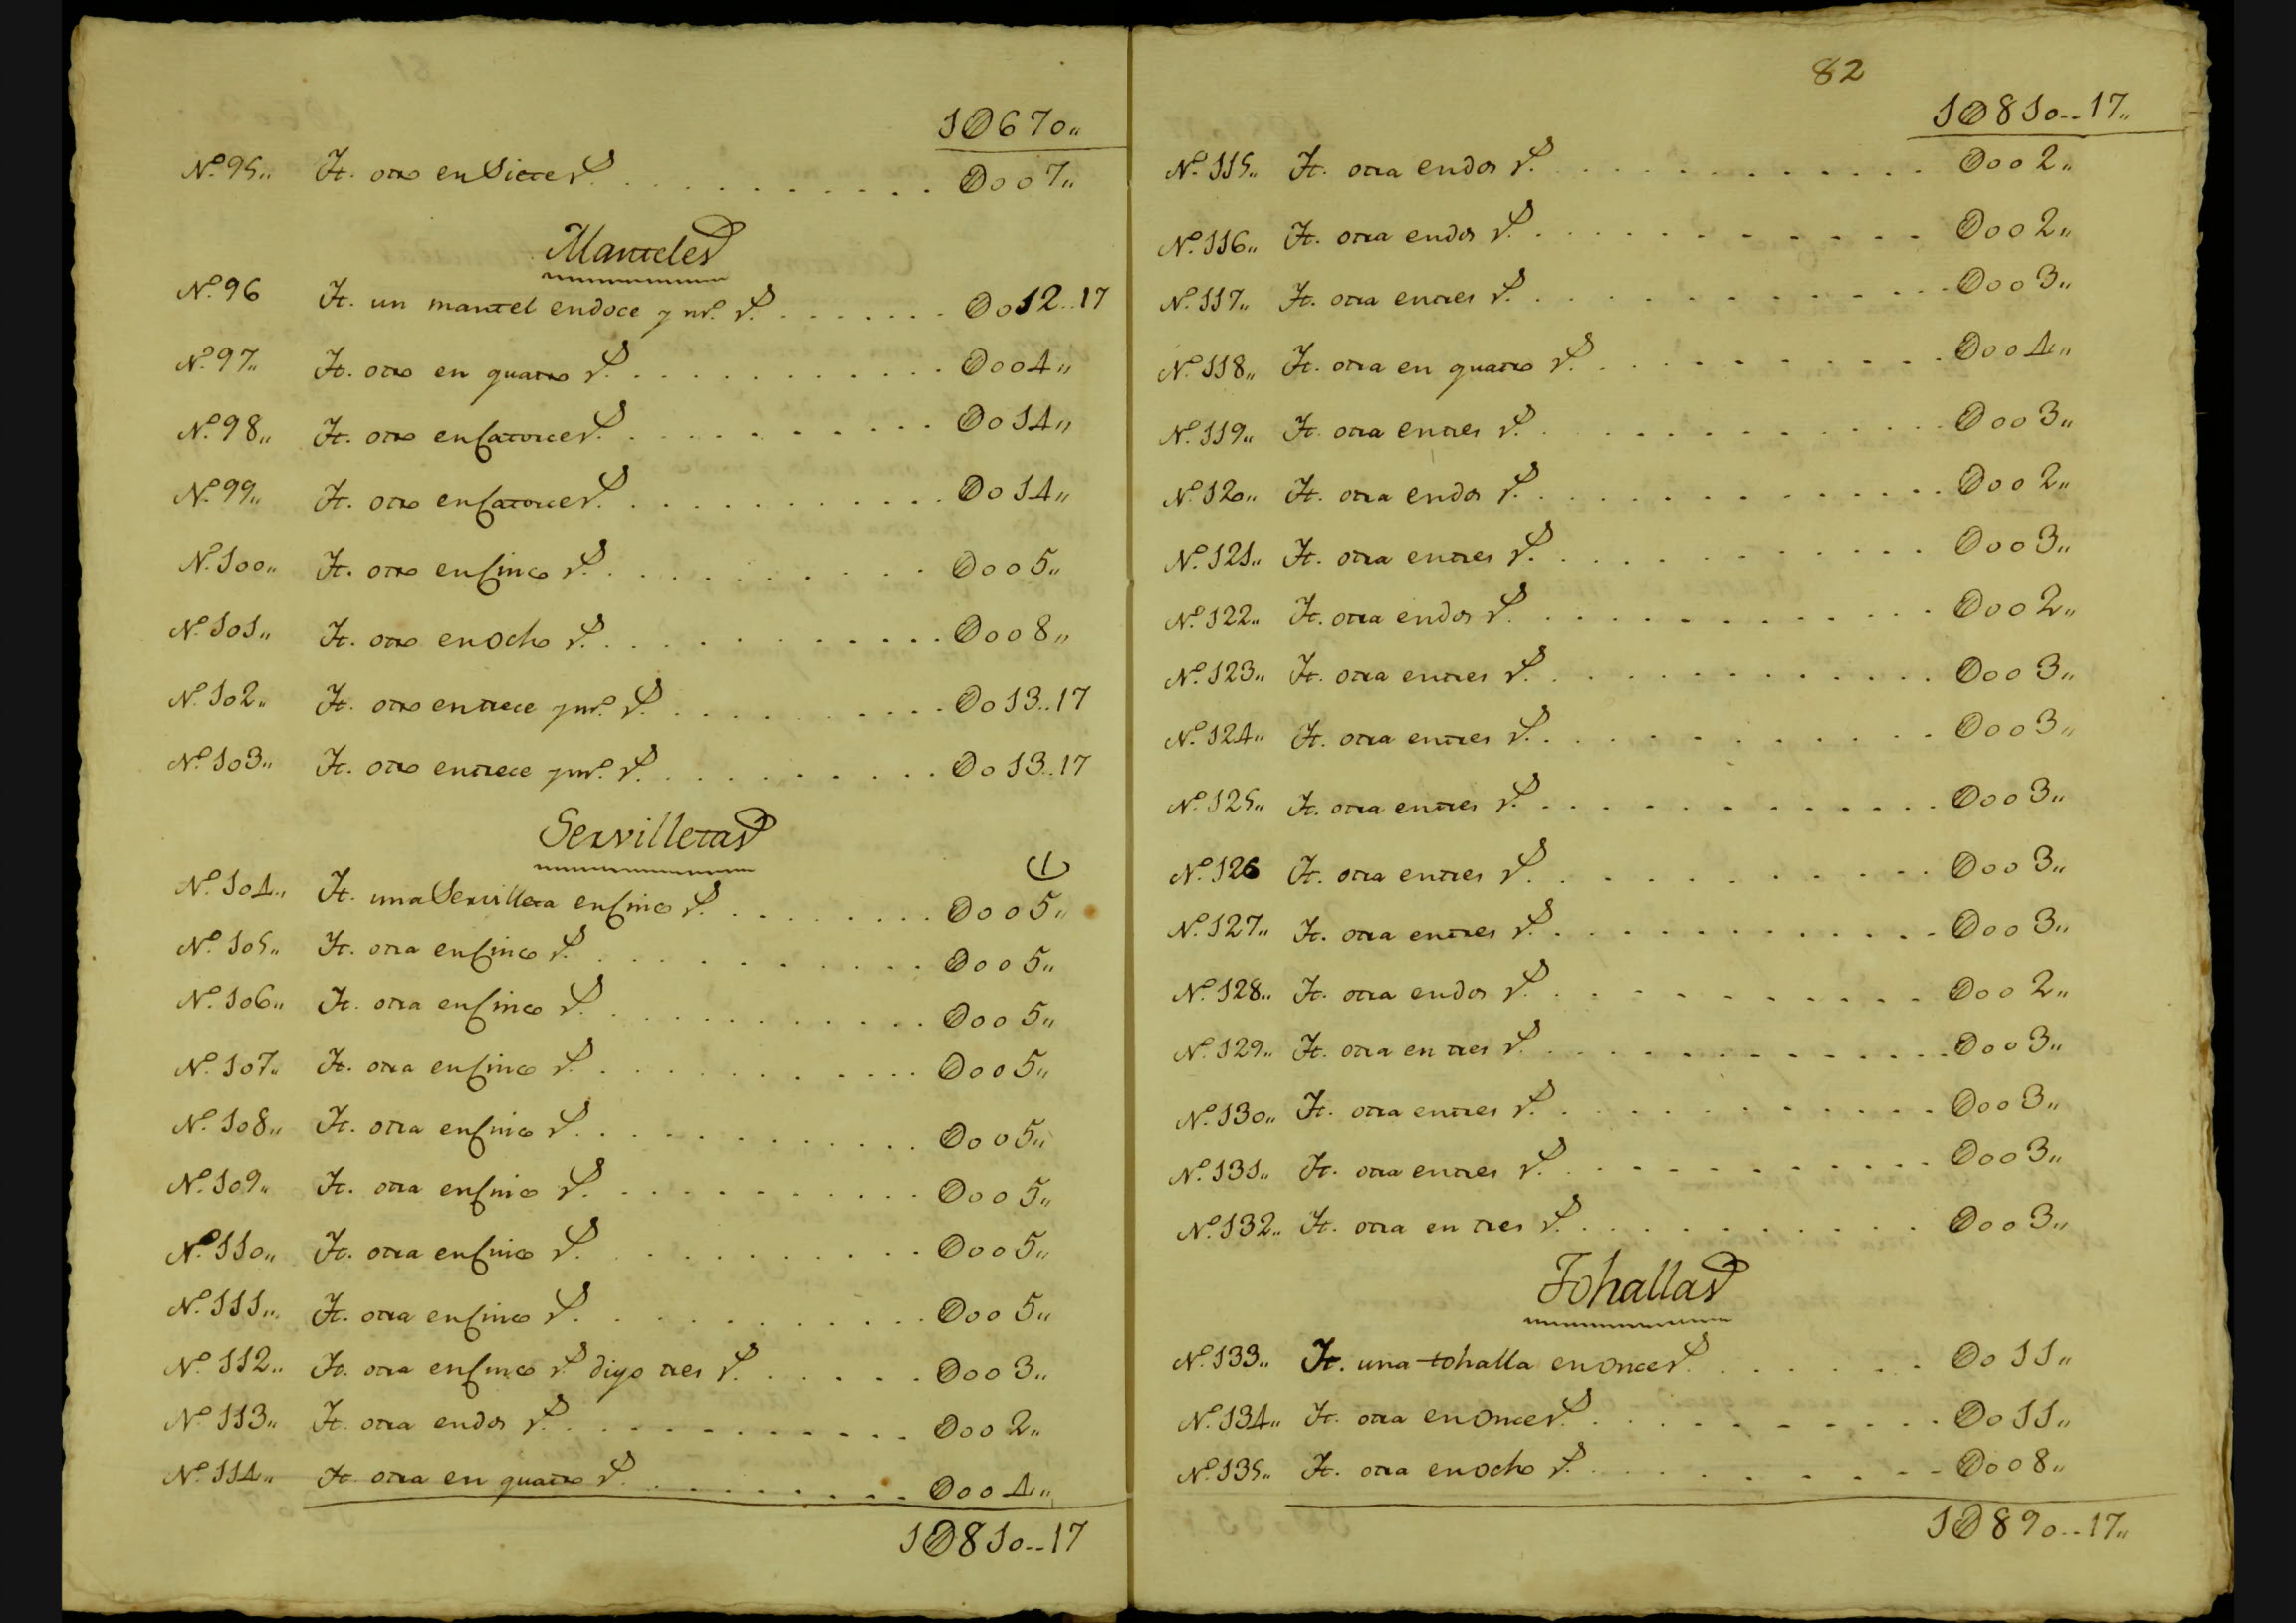 1Ø670,,
N.º 95,, It. otro en Siete r.s . . . . . . . . . . Ø007,,
Manteles
N.º 96 It. un mantel en doce y m.º r.s . . . . . . . Ø012..17
N.º 97,, It. otro en quatro r.s . . . . . . . . . . Ø004,,
N.º 98,, It. otro en Catorce r.s . . . . . . . . . . Ø014,,
N.º 99,, It. otro en Catorce r.s . . . . . . . . . . Ø014,,
N.º 100,, It. otro en Cinco r.s . . . . . . . . . . Ø005,,
N.º 101,, It. otro en ocho r.s . . . . . . . . . . Ø008,,
N.º 102,, It. otro en trece y m.º r.s . . . . . . . . . Ø013..17
N.º 103,, It. otro en trece y m.º r.s . . . . . . . . . Ø013..17
Servilletas
N.º 104,, It. una Servilleta en Cinco r.s . . . . . . . . Ø005,,
N.º 105,, It. otra en Cinco r.s . . . . . . . . . . Ø005,,
N.º 106,, It. otra en Cinco r.s . . . . . . . . . . Ø005,,
N.º 107,, It. otra en Cinco r.s . . . . . . . . . . Ø005,,
N.º 108,, It. otra en Cinco r.s . . . . . . . . . . Ø005,,
N.º 109,, It. otra en Cinco r.s . . . . . . . . . . Ø005,,
N.º 110,, It. otra en Cinco r.s . . . . . . . . . . Ø005,,
N.º 111,, It. otra en Cinco r.s . . . . . . . . . . Ø005,,
N.º 112,, It. otra en Cinco r.s digo tres r.s . . . . . Ø003,,
N.º 113,, It. otra en dos r.s . . . . . . . . . . Ø002,,
N.º 114,, It otra en quatro r.s . . . . . . . . . Ø004,,
1Ø810..17
82
1Ø810..17,,
N.º 115,, It. otra en dos r.s . . . . . . . . . . Ø002,,
N.º 116,, It. otra en dos r.s . . . . . . . . . . Ø002,,
N.º 117,, It. otra en tres r.s . . . . . . . . . . Ø003,,
N.º 118,, It. otra en quatro r.s . . . . . . . . . . Ø004,,
N.º 119,, It. otra en tres r.s . . . . . . . . . . Ø003,,
N.º 120,, It. otra en dos r.s . . . . . . . . . . Ø002,,
N.º 121,, It. otra en tres r.s . . . . . . . . . . Ø003,,
N.º 122,, It. otra en dos r.s . . . . . . . . . . Ø002,,
N.º 123,, It. otra en tres r.s . . . . . . . . . . Ø003,,
N.º 124,, It. otra en tres r.s . . . . . . . . . . Ø003,,
N.º 125,, It. otra en tres r.s . . . . . . . . . . Ø003,,
N.º 126 It. otra en tres r.s . . . . . . . . . . Ø003,,
N.º 127,, It. otra en tres r.s . . . . . . . . . . Ø003,,
N.º 128,, It. otra en dos r.s . . . . . . . . . . Ø002,,
N.º 129,, It. otra en tres r.s . . . . . . . . . . Ø003,,
N.º 130,, It. otra en tres r.s . . . . . . . . . . Ø003,,
N.º 131,, It. otra en tres r.s . . . . . . . . . . Ø003,,
N.º 132,, It. otra en tres r.s . . . . . . . . . . Ø003,,
Tohallas
N.º 133,, It. una tohalla en Once r.s . . . . . . Ø011,,
N.º 134,, It. otra en Once r.s . . . . . . . . . . Ø011,,
N.º 135,, It. otra en ocho r.s . . . . . . . . . . Ø008,,
1Ø890..17,,